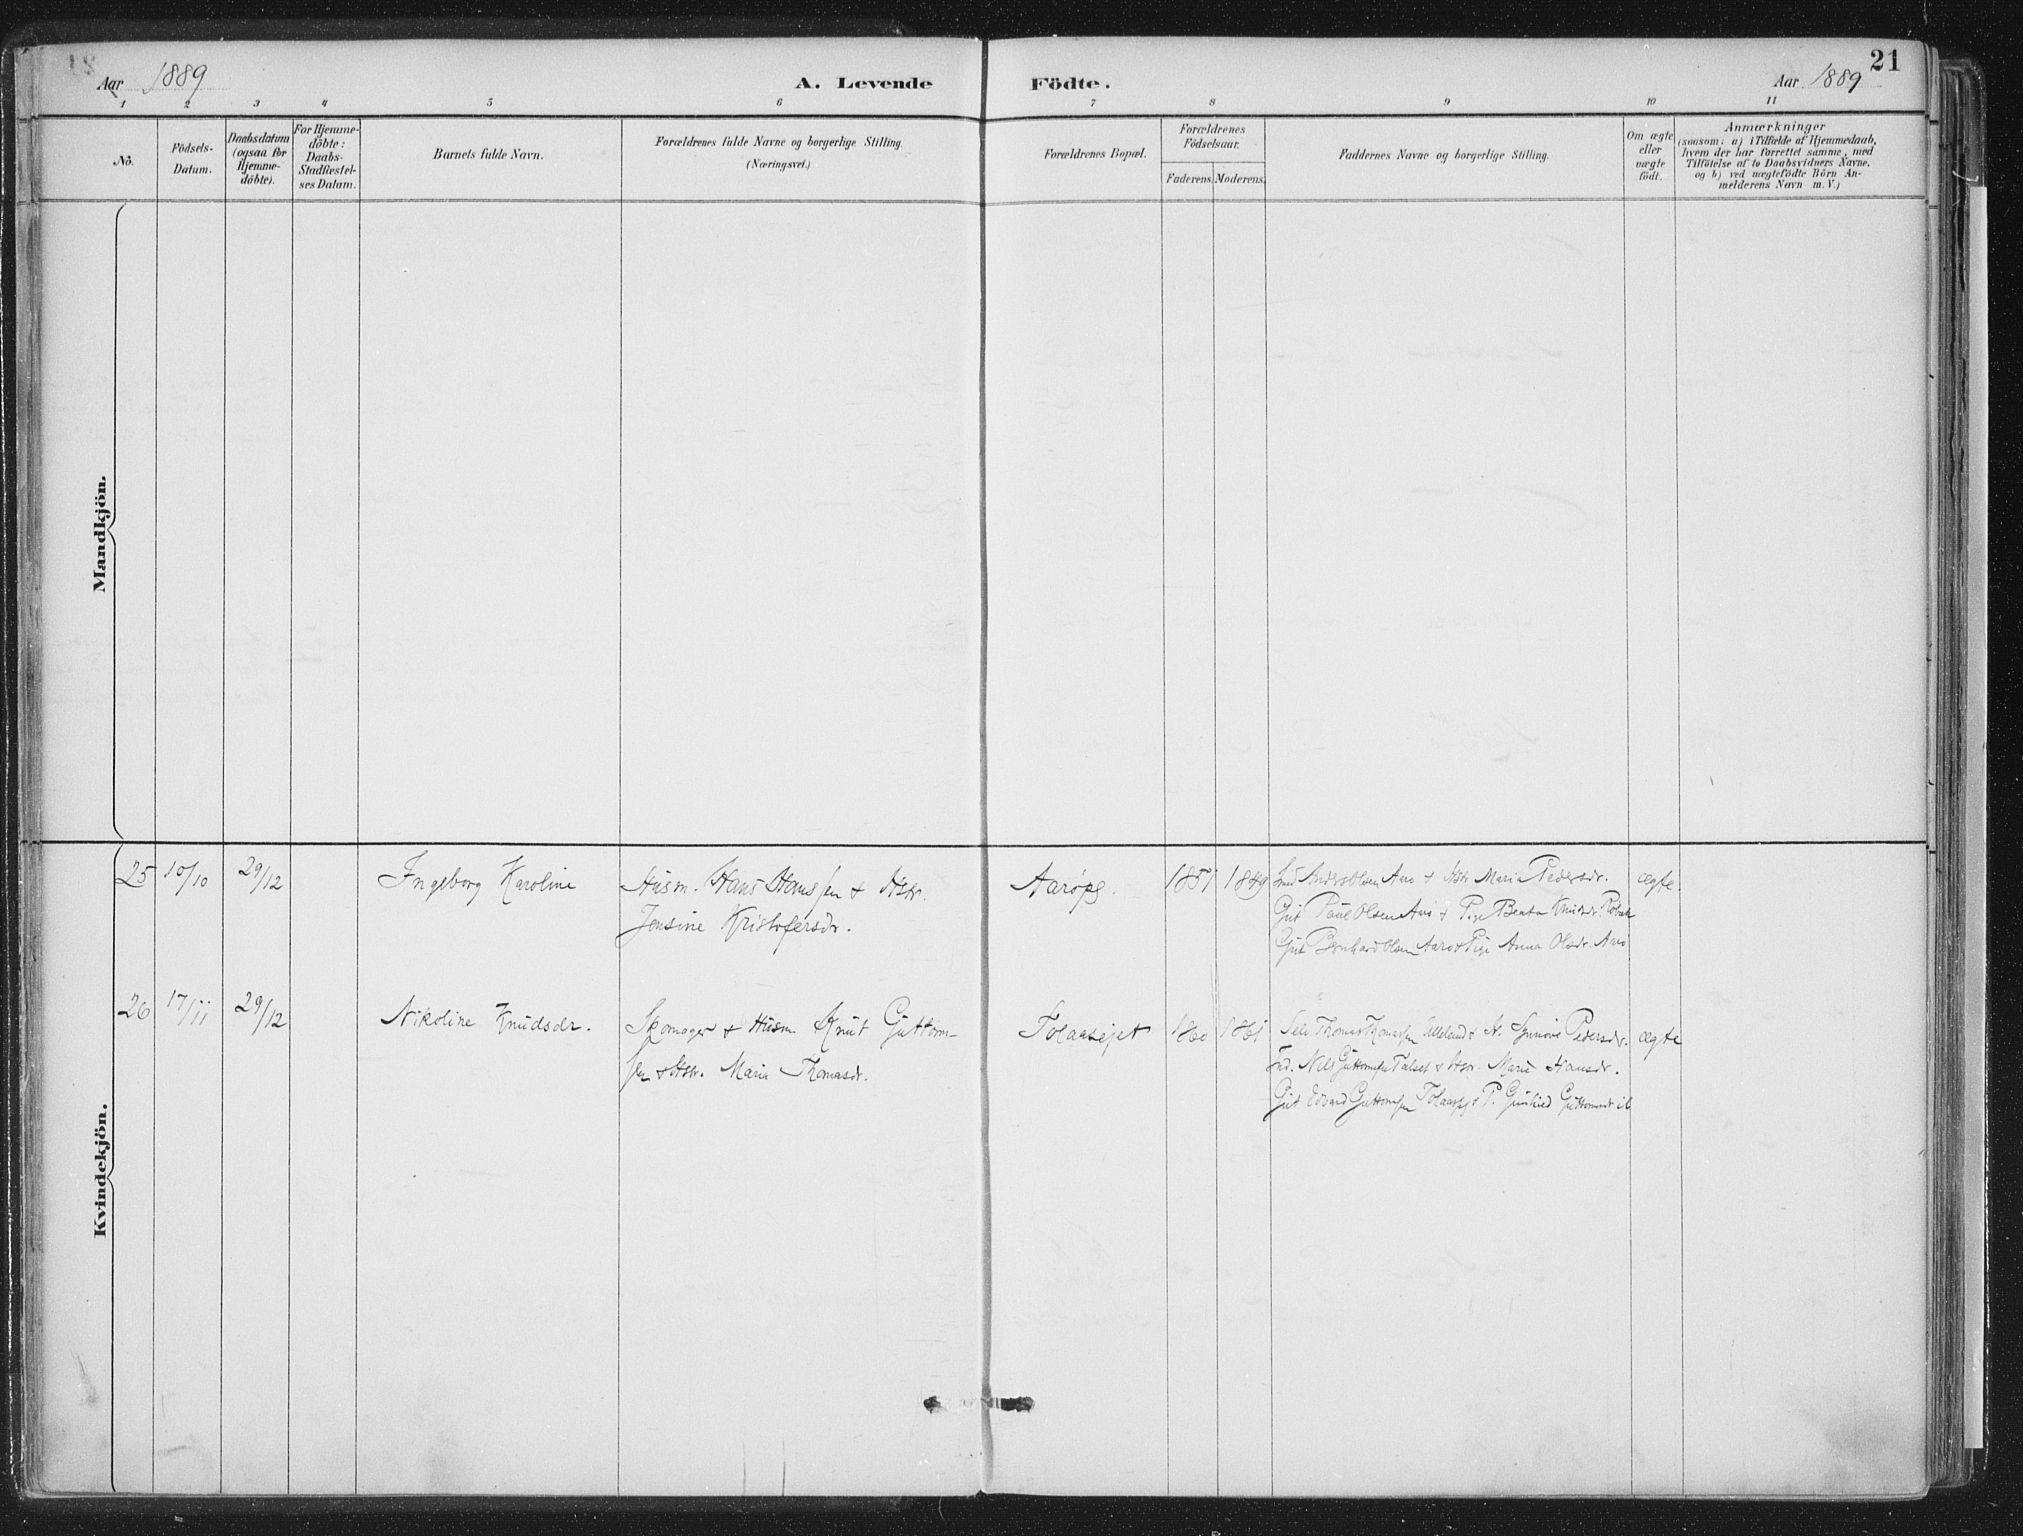 Aar 1889
A. Levende
Födte.
Aar 1889
21
1 2 3 4 5 6 7 8 9 10 11
No.
Födsels-
Datum.
Daabsdatum
(ogsaa for
Hjemme-
döbte).
For Hjemme-
döbte:
Daabs-
Stadfæstel-
ses Datum.
Barnets fulde Navn.
Forældrenes fulde Navne og borgerlige Stilling
(Næringsvei.)
Forældrenes Bopæl.
Forældrenes
Födselsaar.
Faderens. Moderens.
Faddernes Navne og borgerlige Stilling.
Om ægte
eller
uægte
født.
Anmærkninger
(saasom: a) i Tilfælde af Hjemmedaab,
hvem der har forrettet samme, med
Tilföielse af to Daabsvidners Navne,
og b) ved uægtefödte Börn An-
melderens Navn m. V.)
Mandkjön.
Kvindekjön.
25 10/10 29/12 Ingeborg Karoline Husm. Hans Hanssen + Hstr. Aaröpg. 1851 1849 Anders Olsen Aarö + Hstr Mari Pedersdr. ægte.
Jensine Kristofersdr. Gut Paul Olsen Aarö + Pige Beata Knutsdr.
Gut Bernhard Olsen Aarö + Pige Anna Olsdr. Aarö
26 17/11 29/12 Nikoline Knudsdr. Skomager + Husm Knut Guttorm- Tolaasejet 1860 1861 Thomas Thomassen + H. Synnöve Pedersdr. ægte
sen + Hstr. Maria Thomasdr. Ind. Nils Guttormsen + Hstr Marie Hansdr.
Gut Edvard Guttormsen + P. Guttormsdr ib